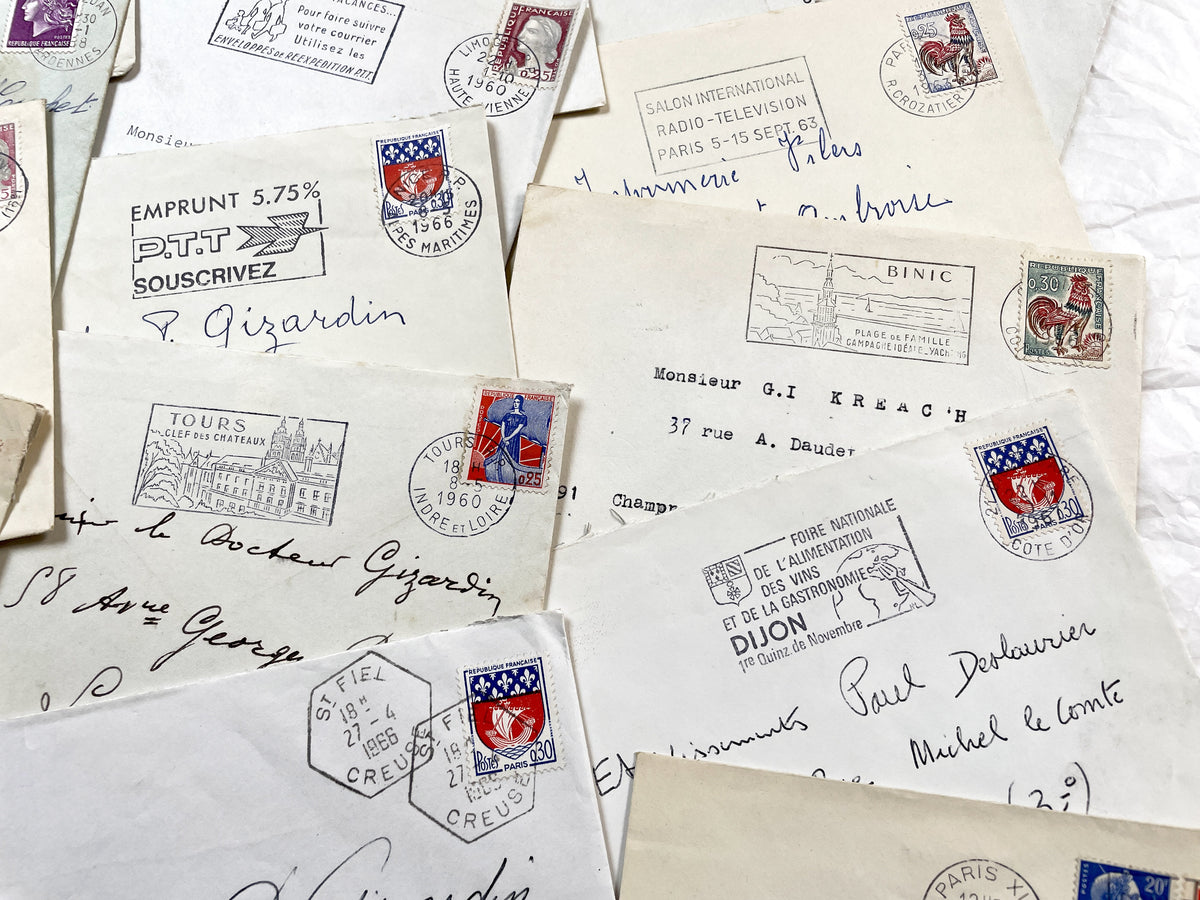 RÉPUBLIQUE FRANÇAISE
Pour faire suivre
votre courrier
Utilisez les
ENVELOPPES de REEXPEDITION P.T.T.
1960
HAUTE VIENNE
0,25
Monsieur
0,25
1963
R. CROZATIER
SALON INTERNATIONAL
RADIO-TELEVISION
PARIS 5-15 SEPT. 63
Imprimerie
Ambroise
EMPRUNT 5.75%
P.T.T
SOUSCRIVEZ
REPUBLIQUE FRANÇAISE
POSTES PARIS 0,30
1966
ALPES MARITIMES
P. Gizardin
BINIC
PLAGE DE FAMILLE
CAMPAGNE IDÉALE_YACHTING
REPUBLIQUE FRANÇAISE
0,30
POSTES
Monsieur G.I KREAC'H
37 rue A. Daudet
91 Champr
TOURS
CLEF DES CHATEAUX
TOURS
18 H
8-
1960
INDRE ET LOIRE
REPUBLIQUE FRANÇAISE
0,25
le Docteur Gizardin
58 Avnue George
FOIRE NATIONALE
DE L'ALIMENTATION
DES VINS
ET DE LA GASTRONOMIE
DIJON
1re Quinz de Novembre
REPUBLIQUE FRANÇAISE
POSTES PARIS 0,30
COTE D'OR
Paul Deslaurier
Etablissements
Michel le Comte
(3è)
ST FIEL
18 H
27-4
1966
CREUSE
REPUBLIQUE FRANÇAISE
POSTES PARIS 0,30
CREUSE
Gizardin
PARIS XI
POSTES
20F